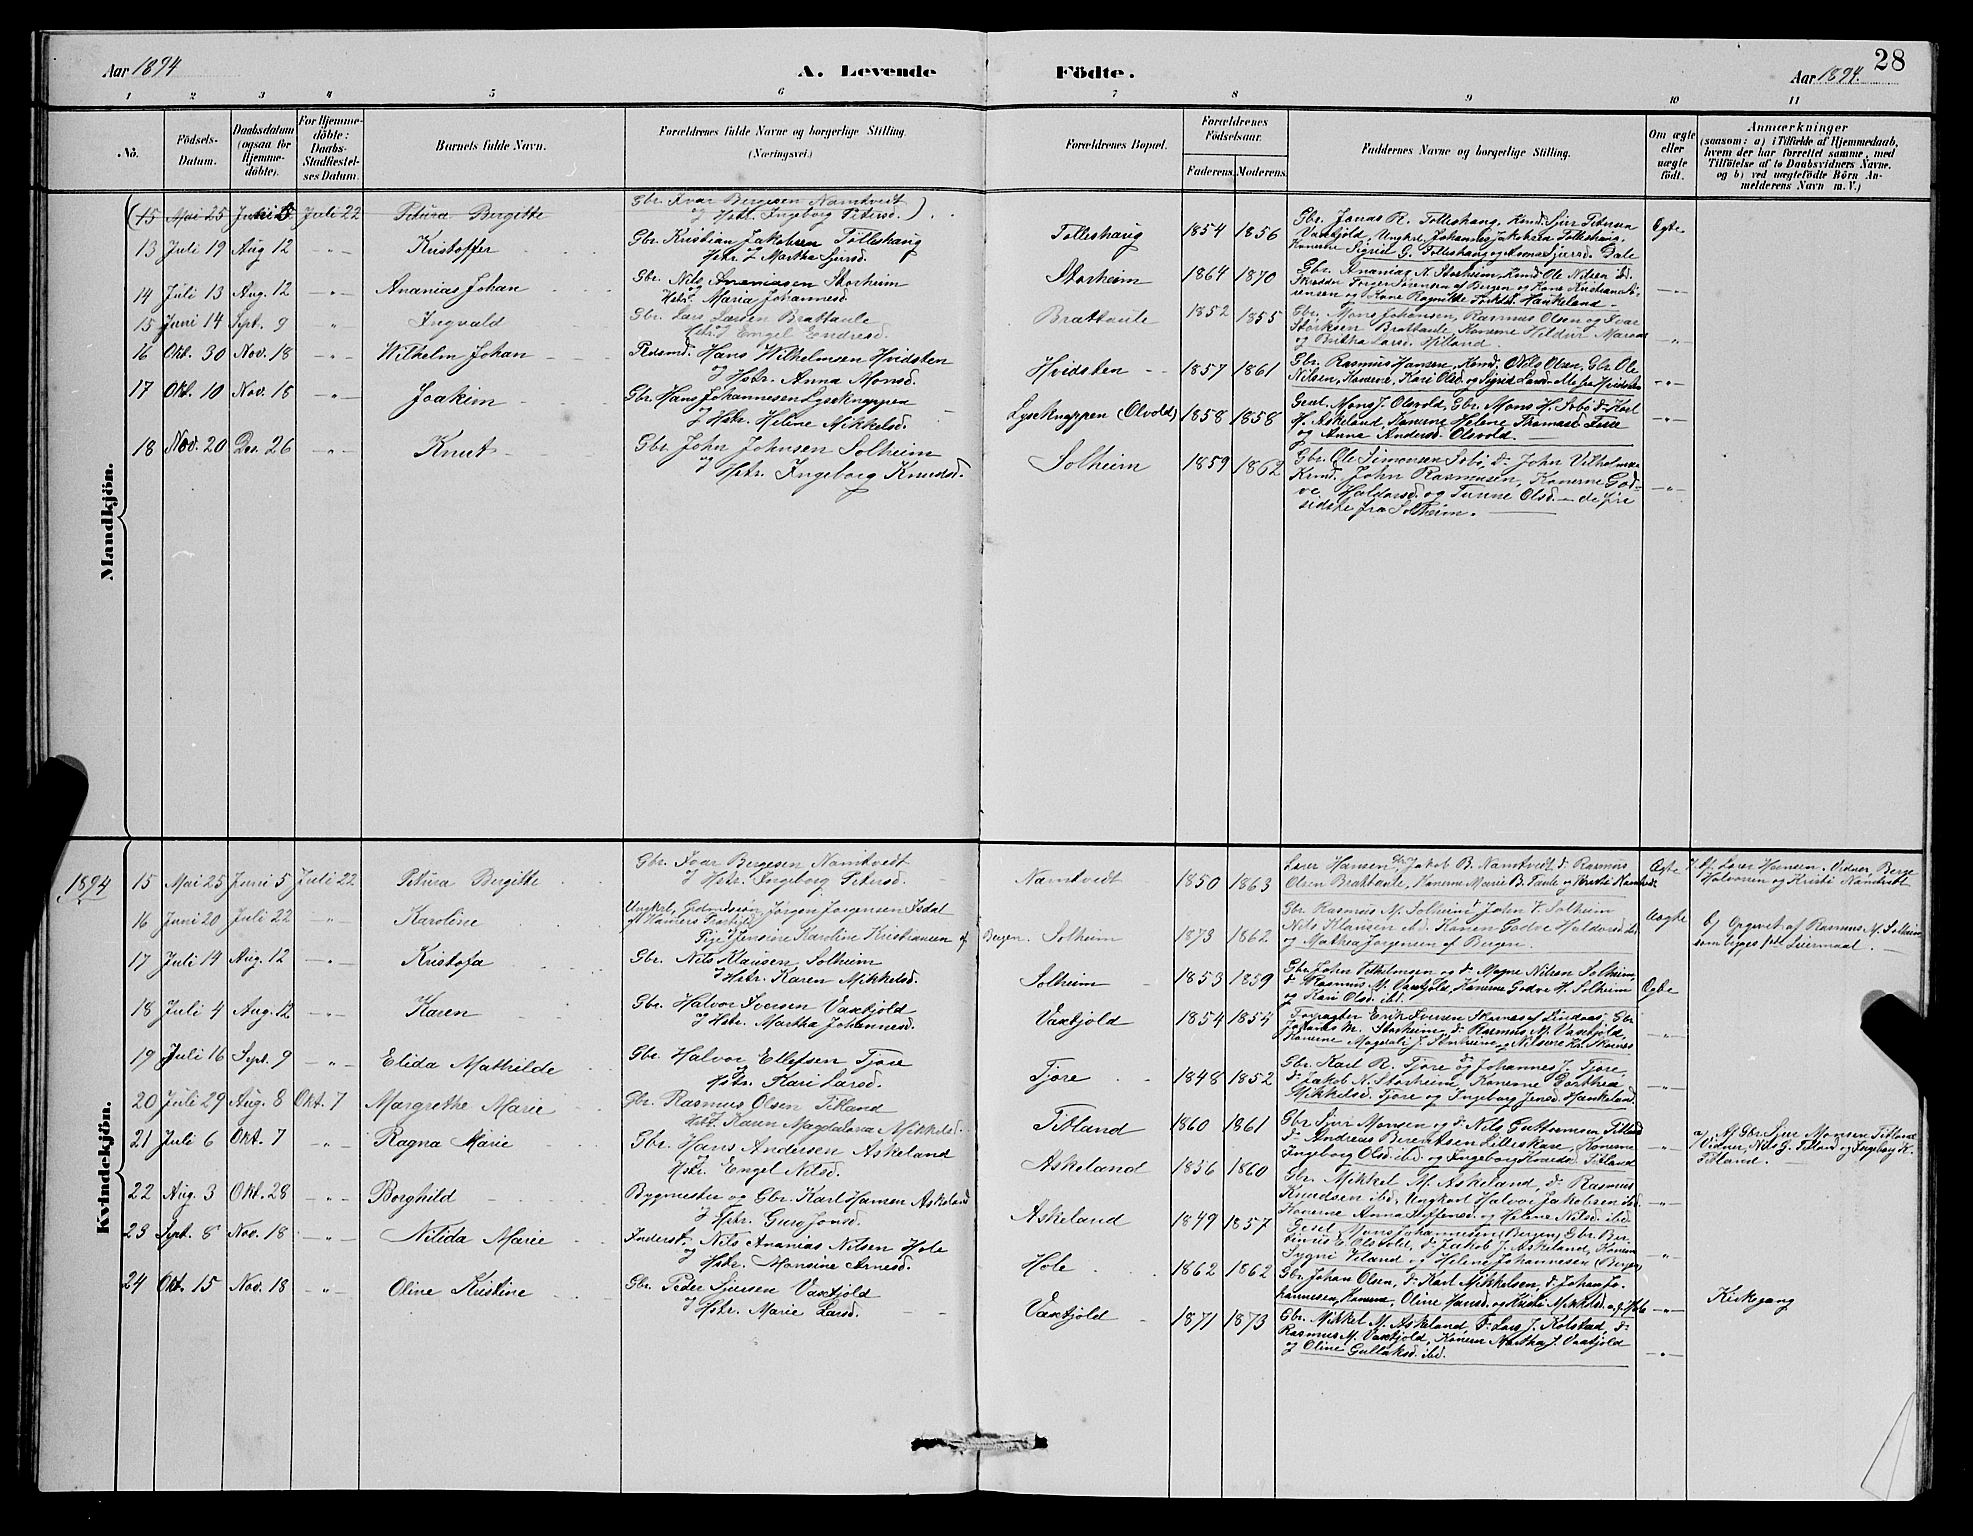 Aar 1894
A. Levende
Födte.
28
Aar 1894.
1 2 3 4 5 6 7 8 9 10 11
No.
Födsels-Datum.
Daabsdatum (ogsaa for Hjemme-döbte).
For Hjemme-döbte: Daabs-Stadfæstel-ses Datum.
Barnets fulde Navn.
Forældrenes fulde Navne og borgerlige Stilling. (Næringsvei.)
Forældrenes Bopæl.
Forældrenes Födselsaar.
Faderens. Moderens.
Faddernes Navne og borgerlige Stilling.
Om ægte eller uægte født.
Anmærkninger
(saasom: a) i Tilfælde af Hjemmedaab,
hvem der har forrettet samme, med
Tilföielse af to Daabsvidners Navne,
og b) ved uægtefödte Börn An-
melderens Navn m. V.)
Mandkjön.
(15 Mai 25 Juni 5 Juli 22 Petura Bergitte Gbr. Ivar Bergesen Namtvedt
og Hstr. Ingeborg Petersd.)
13 Juli 19 Aug 12 -"- Kristoffer Gbr. Kristian Jakobsen Tolleshaug
og Hstr. Martha Sjursd. Tolleshaug 1854 1856 Gbr. Jonas R. Tolleshaug, Kmd. Sjur Petersen
Vaxtjold, Ungkl. Johannes Jakobsen Tolleshaug,
Konerne Sigrid G. Tolleshaug og Anna Sjursd. Dale Ægte
14 Juli 13 Aug. 12 -"- Ananias Johan Gbr. Nils Ananiasen Storheim
og Hstr. Maria Johannesd. Storheim 1864 1870 Gbr. Ananias N. Storheim, Kmd. Ole Nilsen ibd.
Skrædder Torger Sørensen af Bergen og Kone Kristiana Sö-
rensen og Kone Ragnilde Hankeland -"-
15 Juni 14 Sept. 9 " Ingvald Gbr. Lars Larsen Brattaule
og Hstr. Engel Endresd. Brattaule 1852 1855 Gbr. Mons Johansen, Rasmus Olsen og Ivar
Störksen Brattaule, Konerne
og Britha Larsd. -"-
16 Okt. 30 Nov. 18 -"- Wilhelm Johan Hans Wilhelmsen Hvidsten
og Hstr. Anna Monsd. Hvidsten 1857 1861 Gbr. Rasmus Hansen, Kmd. Nils Olsen, Gbr. Ole
Nilsen, Konerne, Kari Olsd. og Sigrid Larsd. Alle fra Hvidsten -"-
17 Okt. 10 Nov. 18 -"- Joakim Gbr. Hans Johannesen Lyseknappen
og Hstr. Helene Mikkelsd. Lyseknappen (Olsvold) 1858 1858 Mons J. Olsvold, Gbr. Mons H. Sebö, do Karl
H. Askeland, Konerne Helene Thomasd.
og Anna Andersd. Olsvold. -"-
18 Nov. 20 Des. 26 -"- Knut Gbr. John Johnsen Solheim
og Hstr. Ingeborg Knudsd. Solheim 1859 1862 Gbr. Ole Simonsen Sebö, do John Vilhelmsen
Kmd. John Rasmusen, Konerne God-
ve Haldorsd. og Turine Olsd. - de fire
sidste fra Solheim.
Kvindekjön.
1894 15 Mai 25 Juni 5 Juli 22 Petura Bergitte Gbr. Ivar Bergesen Namtvedt
og Hstr. Ingeborg Petersd. Namtvedt 1850 1863 Lærer Hansen, Gbr. Jakob B. Namtvedt, do Rasmus
Olsen Brattaule, Konerne Marie B. Taule og Kristi Namtvedt Ægte Af Lærer Hansen. Vidner, Berge
Halvorsen og Kristi Namtvedt
16 Juni 20 Juli 22 -"- Karoline Ungkrl. Jørgen Jørgensen Isdal
af Hammers Præstgjeld
og Pige Jensine Karoline Kristiansen af Bergen. Solheim 1873 1862 Gbr. Rasmus M. Solheim, John V. Solheim
Nils Klausen ibd. Konen Godve Haldorsd. ibd.
og Mathea Jørgensen af Bergen. Uægte b) Opgivet af Rasmus M. Solheim
som begges 1ste Leiermaal.
17 Juli 14 Aug. 12 -"- Kristofa Gbr. Nils Klausen Solheim
og Hstr. Karen Mikkelsd. Solheim 1853 1859 Gbr. John Vilhelmsen og do Magne Nilsen Solheim,
do Rasmus M. Vaxtjold, Konerne Godve H. Solheim
og Kari Olsd. ibd. Ægte
18 Juli 4 Aug. 12 -"- Karen Gbr. Halvor Iversen Vaxtjold
og Hstr. Martha Johannesd. Vaxtjold 1854 1854 Forpagter Erik Iversen Skarnes af Lindaas, Gbr.
Johannes M. Storheim, do Rasmus M. Vaxtjold,
Konerne Magdali J. Storheim og Nilsine Skarnes -"-
19 Juli 16 Sept. 9 -"- Elida Mathilde Gbr. Halvor Ellefsen Tjore
og Hstr. Kari Larsd. Tjore 1848 1852 Gbr. Karl R. Tjore, do Johannes J. Tjore,
do Jakob N. Storheim, Konerne Dorthea
Mikkelsd. Tjore og Ingeborg Jensd. Hankeland. -"-
20 Juli 29 Aug. 8 Okt. 7 Margrethe Marie Gbr. Rasmus Olsen Titland
og Hstr. Karen Magdalena Mikkelsd. Titland 1860 1861 Gbr. Sjur Monsen og do Nils Guttormsen Titland
do Andreas Berentsen Lilleskare, Konerne
Ingeborg Olsd. ibd. og Ingeborg Knudsd. Titland " a) Af Gbr. Sjur Monsen Titland
Vidner, Nils G. Titland og Ingeborg K.
Titland.
21 Juli 6 Okt. 7 -"- Ragna Marie Gbr. Hans Andersen Askeland
Hstr. Engel Nilsd. Askeland 1856 1860 Gbr. Mikkel M. Askeland, do Rasmus
Knudsen ibd. Ungkarl Halvor Jakobsen ibd.
Konerne Anna Steffensd. og Helene Nilsd. ibd. -"-
22 Aug. 3 Okt. 28 -"- Borghild Bygmester og Gbr. Karl Hansen Askeland
og Hstr. Guro Jonsd. Askeland 1849 1857 Mons Johannesen (Bergen) Gbr. Ber-
tinus E. Olsvold, do Jakob J. Askeland, Konerne
og Helene Johannesen (Bergen) -"-
23 Sept. 8 Nov. 18 -"- Nilida Marie Inderst, Nils Ananias Nilsen Hole
og Hstr. Monsine Arnesd. Hole 1862 1862 Gbr. Johan Olsen, do Karl Mikkelsen, do Johan Jo-
hannesen, Konerne, Oline Hansd. og Kristi Mikkelsd. af Hole -"- Kirkegang
24 Okt. 15 Nov. 18 -"- Oline Kristine Gbr. Peder Sjursen Vaxtjold
og Hstr. Marie Larsd. Vaxtjold 1871 1873 Gbr. Mikkel M. Askeland, do Lars J. Kolstad, do
Rasmus M. Vaxtjold, Konerne Martha J. Vaxtjold
og Oline Gullaksd. ibd. -"-